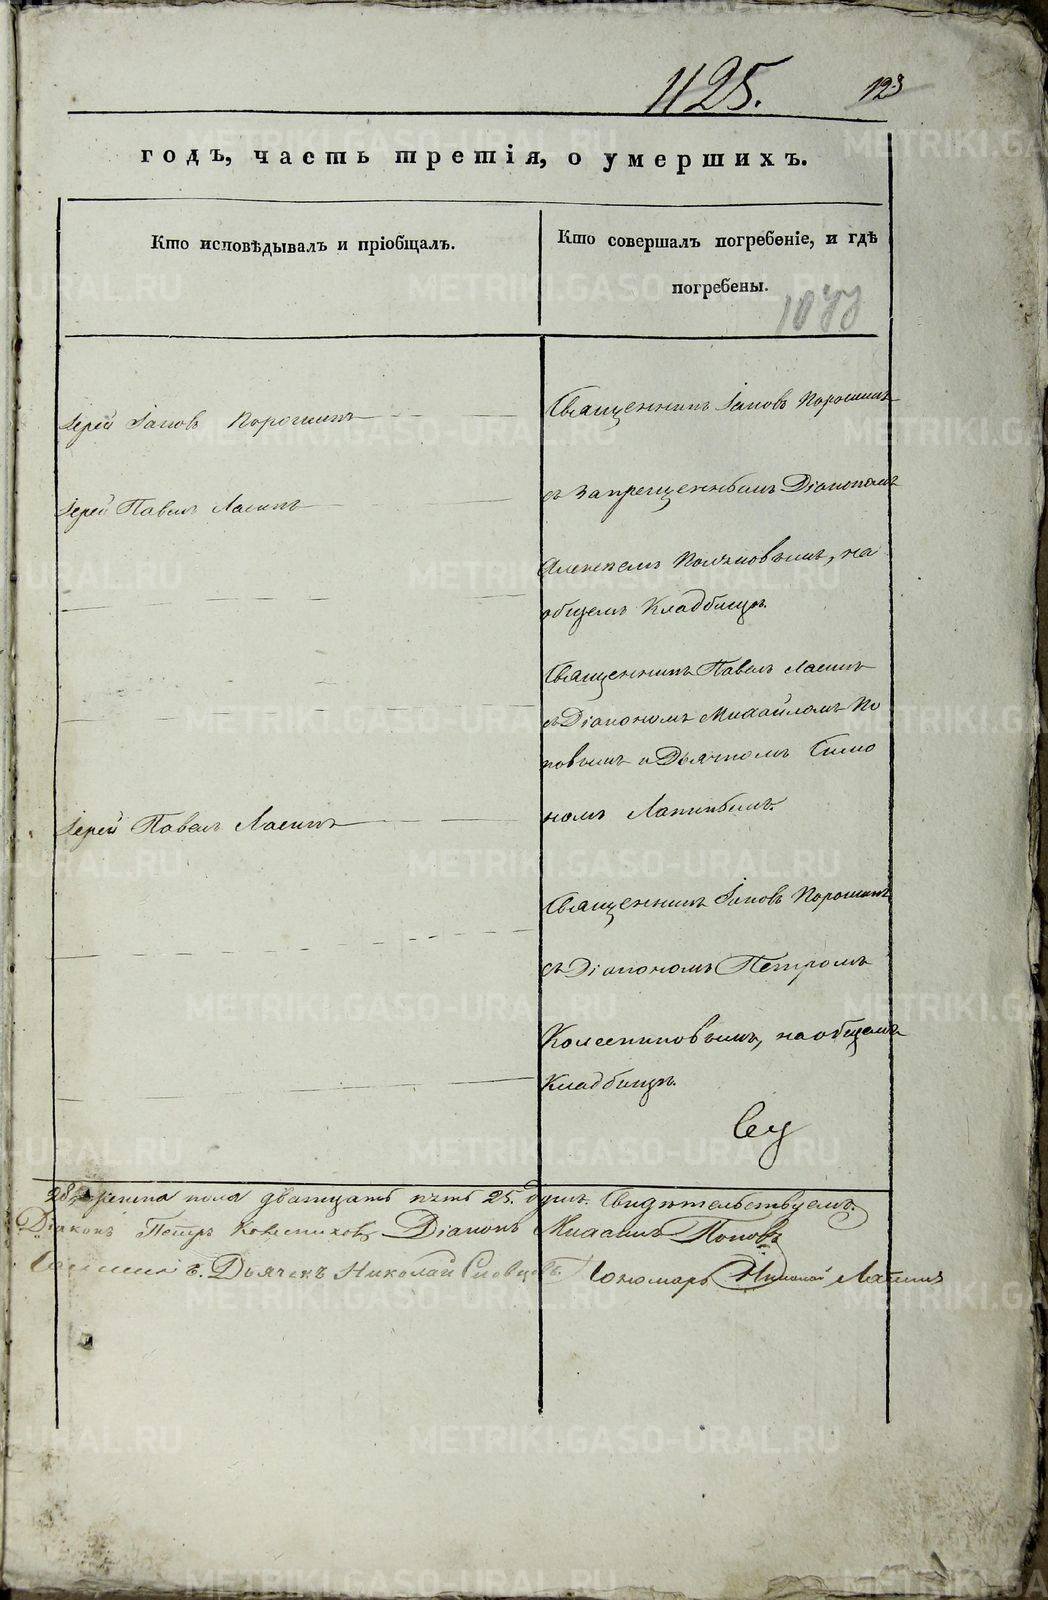 1125.
123
годъ, часть третія, о умершихъ.
Кто исповѣдывалъ и пріобщалъ.
Кто совершалъ погребеніе, и гдѣ
погребены.
Іерей Іаковъ Порошинъ
Священникъ Іаковъ Порошинъ
Іерей Павелъ Ласинъ
съ запрещеннымъ Діакономъ
Алексѣемъ Поляковымъ, на
общемъ Кладбищѣ.
Священникъ Павелъ Ласинъ
съ Діакономъ Михайломъ По
повымъ и Дьячкомъ Симо
номъ
Іерей Павелъ Ласинъ
Священникъ Іаковъ Порошинъ
съ Діакономъ Петромъ
Колесниковымъ, на общемъ
Кладбищѣ.
пола дватцать пять 25. душъ. Свидѣтельствуемъ.
Діаконъ Петръ Колесниковъ Діаконъ Михаилъ Поповъ
Дьячекъ Николай Пономарь Николай
METRIKI.GASO-URAL.RU